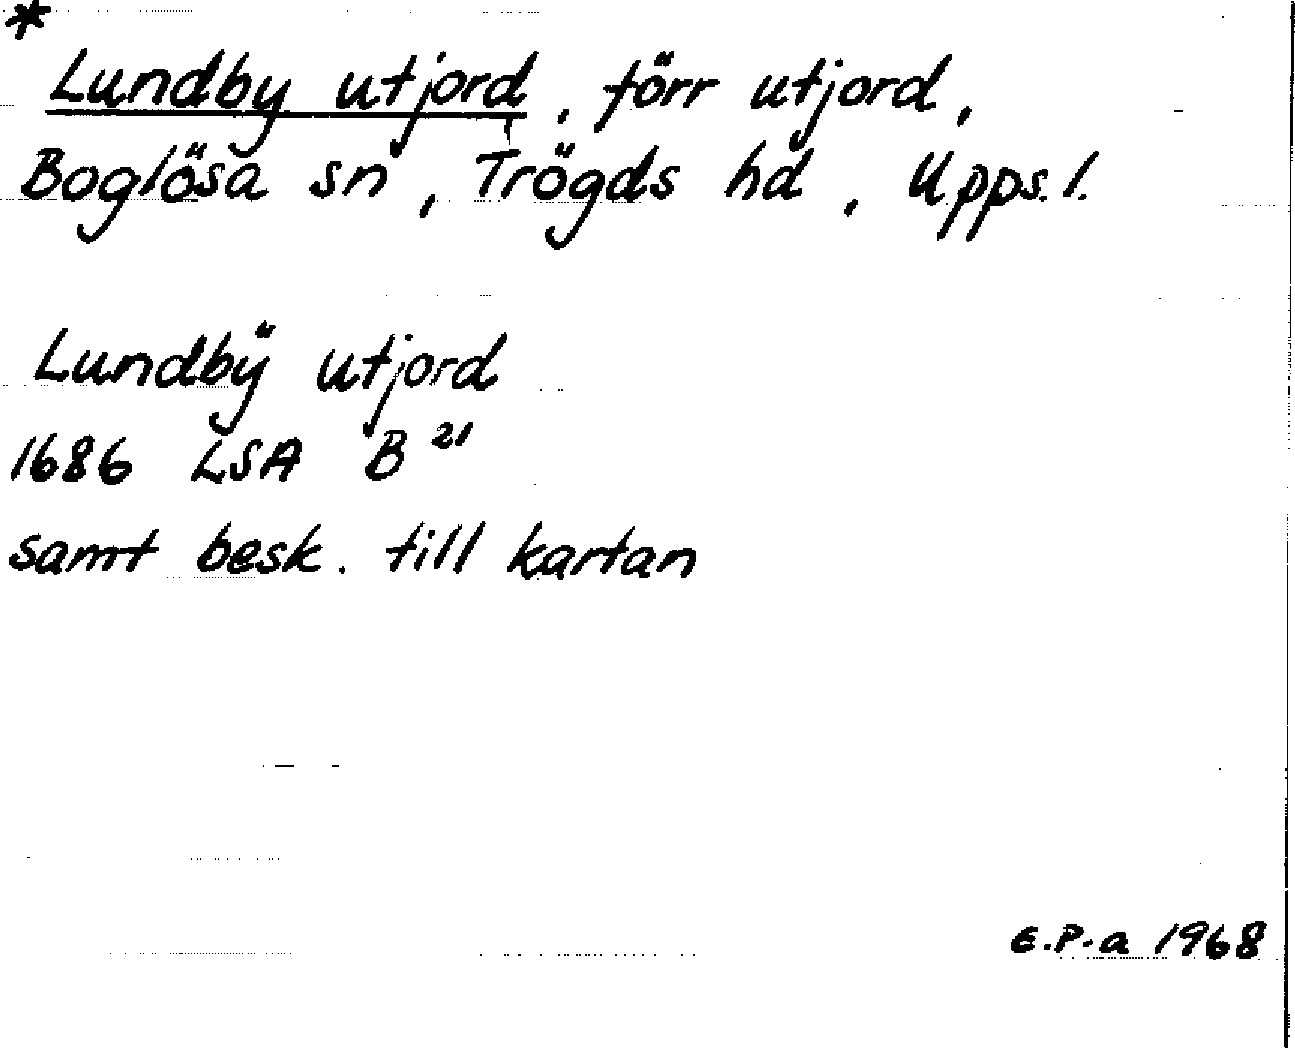 *
Lundby utjord, förr utjord,
Boglösa sn, Trögds hd, Upps. l.
Lundbÿ utjord
1686 LSA B 21
samt besk. till kartan
E.P-a 1968